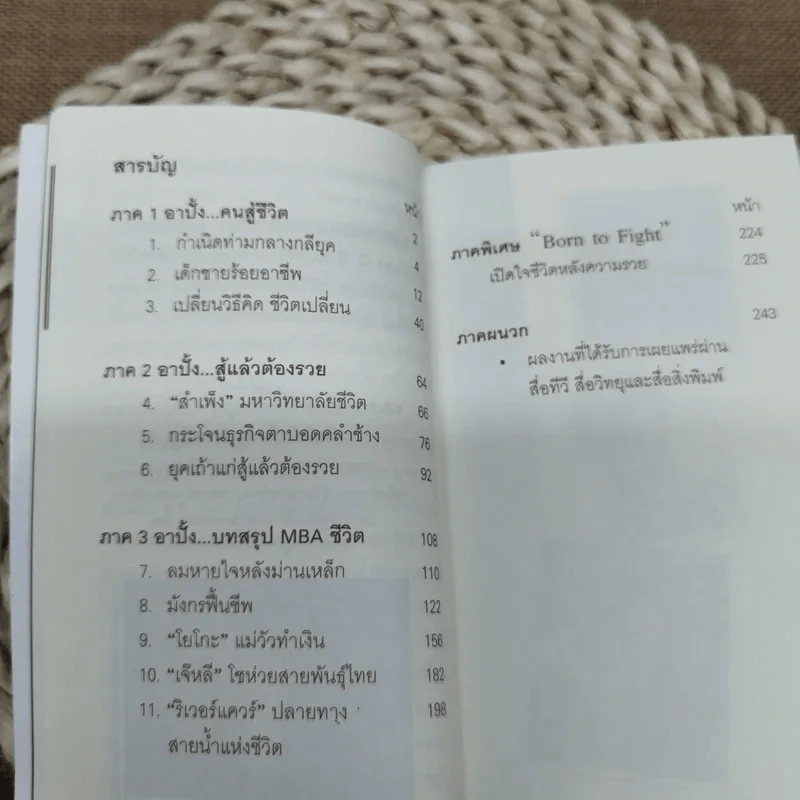 สารบัญ
หน้า
ภาค 1 อาปั้ง...คนสู้ชีวิต 2
1. กำเนิดท่ามกลางกลียุค 4
2. เด็กชายร้อยอาชีพ 12
3. เปลี่ยนวิธีคิด ชีวิตเปลี่ยน 40
ภาค 2 อาปั้ง...สู้แล้วต้องรวย 64
4. “สำเพ็ง” มหาวิทยาลัยชีวิต 66
5. กระโจนธุรกิจตาบอดคลำช้าง 76
6. ยุคเถ้าแก่สู้แล้วต้องรวย 92
ภาค 3 อาปั้ง...บทสรุป MBA ชีวิต 108
7. ลมหายใจหลังม่านเหล็ก 110
8. มังกรฟื้นชีพ 122
9. “โยโกะ” แม่วัวทำเงิน 156
10. “เจ๊หลี” โชห่วยสายพันธุ์ไทย 182
11. “ริเวอร์แควร์” ปลายทาง 198
สายน้ำแห่งชีวิต
หน้า
ภาคพิเศษ “Born to Fight” 224
เปิดใจชีวิตหลังความรวย 225
ภาคผนวก 243
• ผลงานที่ได้รับการเผยแพร่ผ่าน
สื่อทีวี สื่อวิทยุและสื่อสิ่งพิมพ์